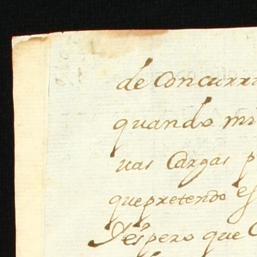 de Concurr
quando mi
uas Cargas p
que pretendo es
Y espero que C